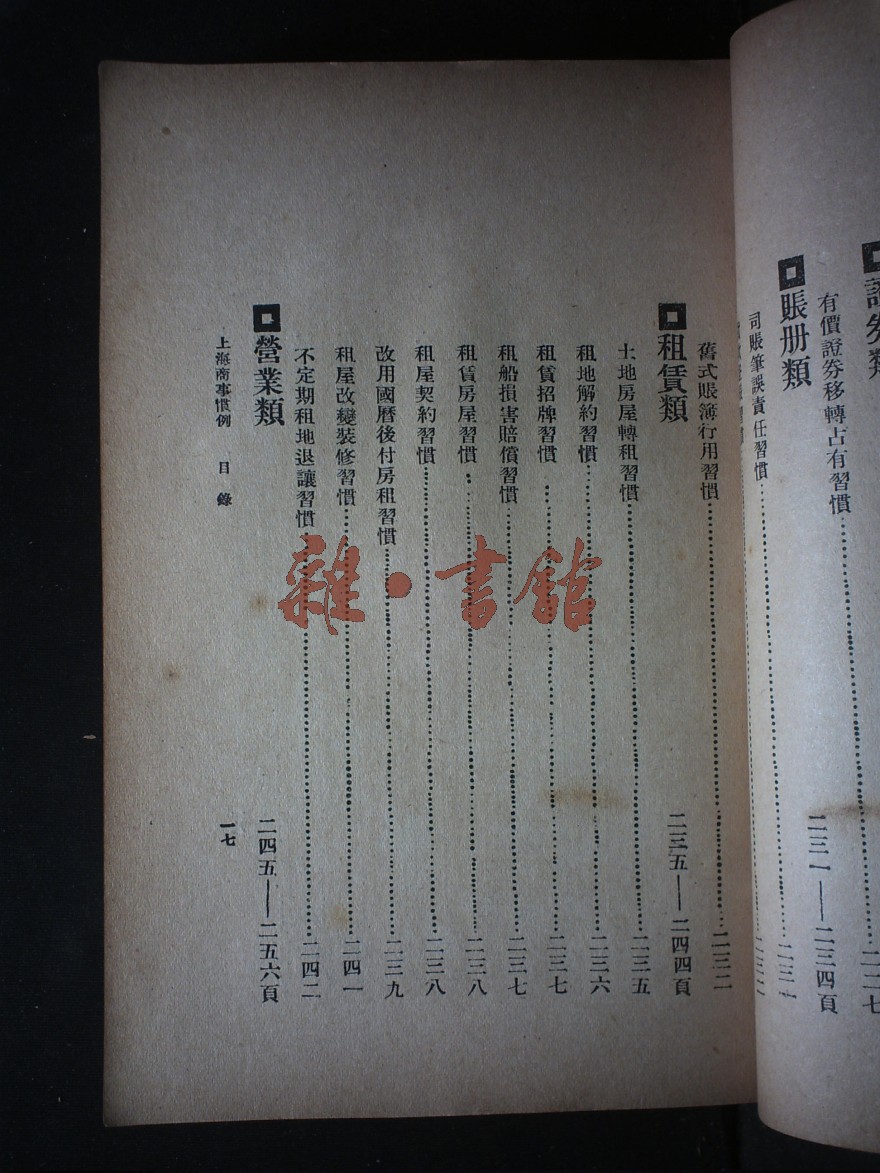 有價證劵移轉占有習慣……二二七
賬册類 二三一——二三四頁
司賬筆誤責任習慣……二三一
舊式賬簿行用習慣……二三二
租賃類 二三五——二四四頁
土地房屋轉租習慣……二三五
租地解約習慣……二三六
租賃招牌習慣……二三七
租船損害賠償習慣……二三七
租賃房屋習慣……二三八
租屋契約習慣……二三八
改用國曆後付房租習慣……二三九
租屋改變裝修習慣……二四一
不定期租地退讓習慣……二四二
營業類 二四五——二五六頁
上海商事慣例 目錄 一七
雜·書館